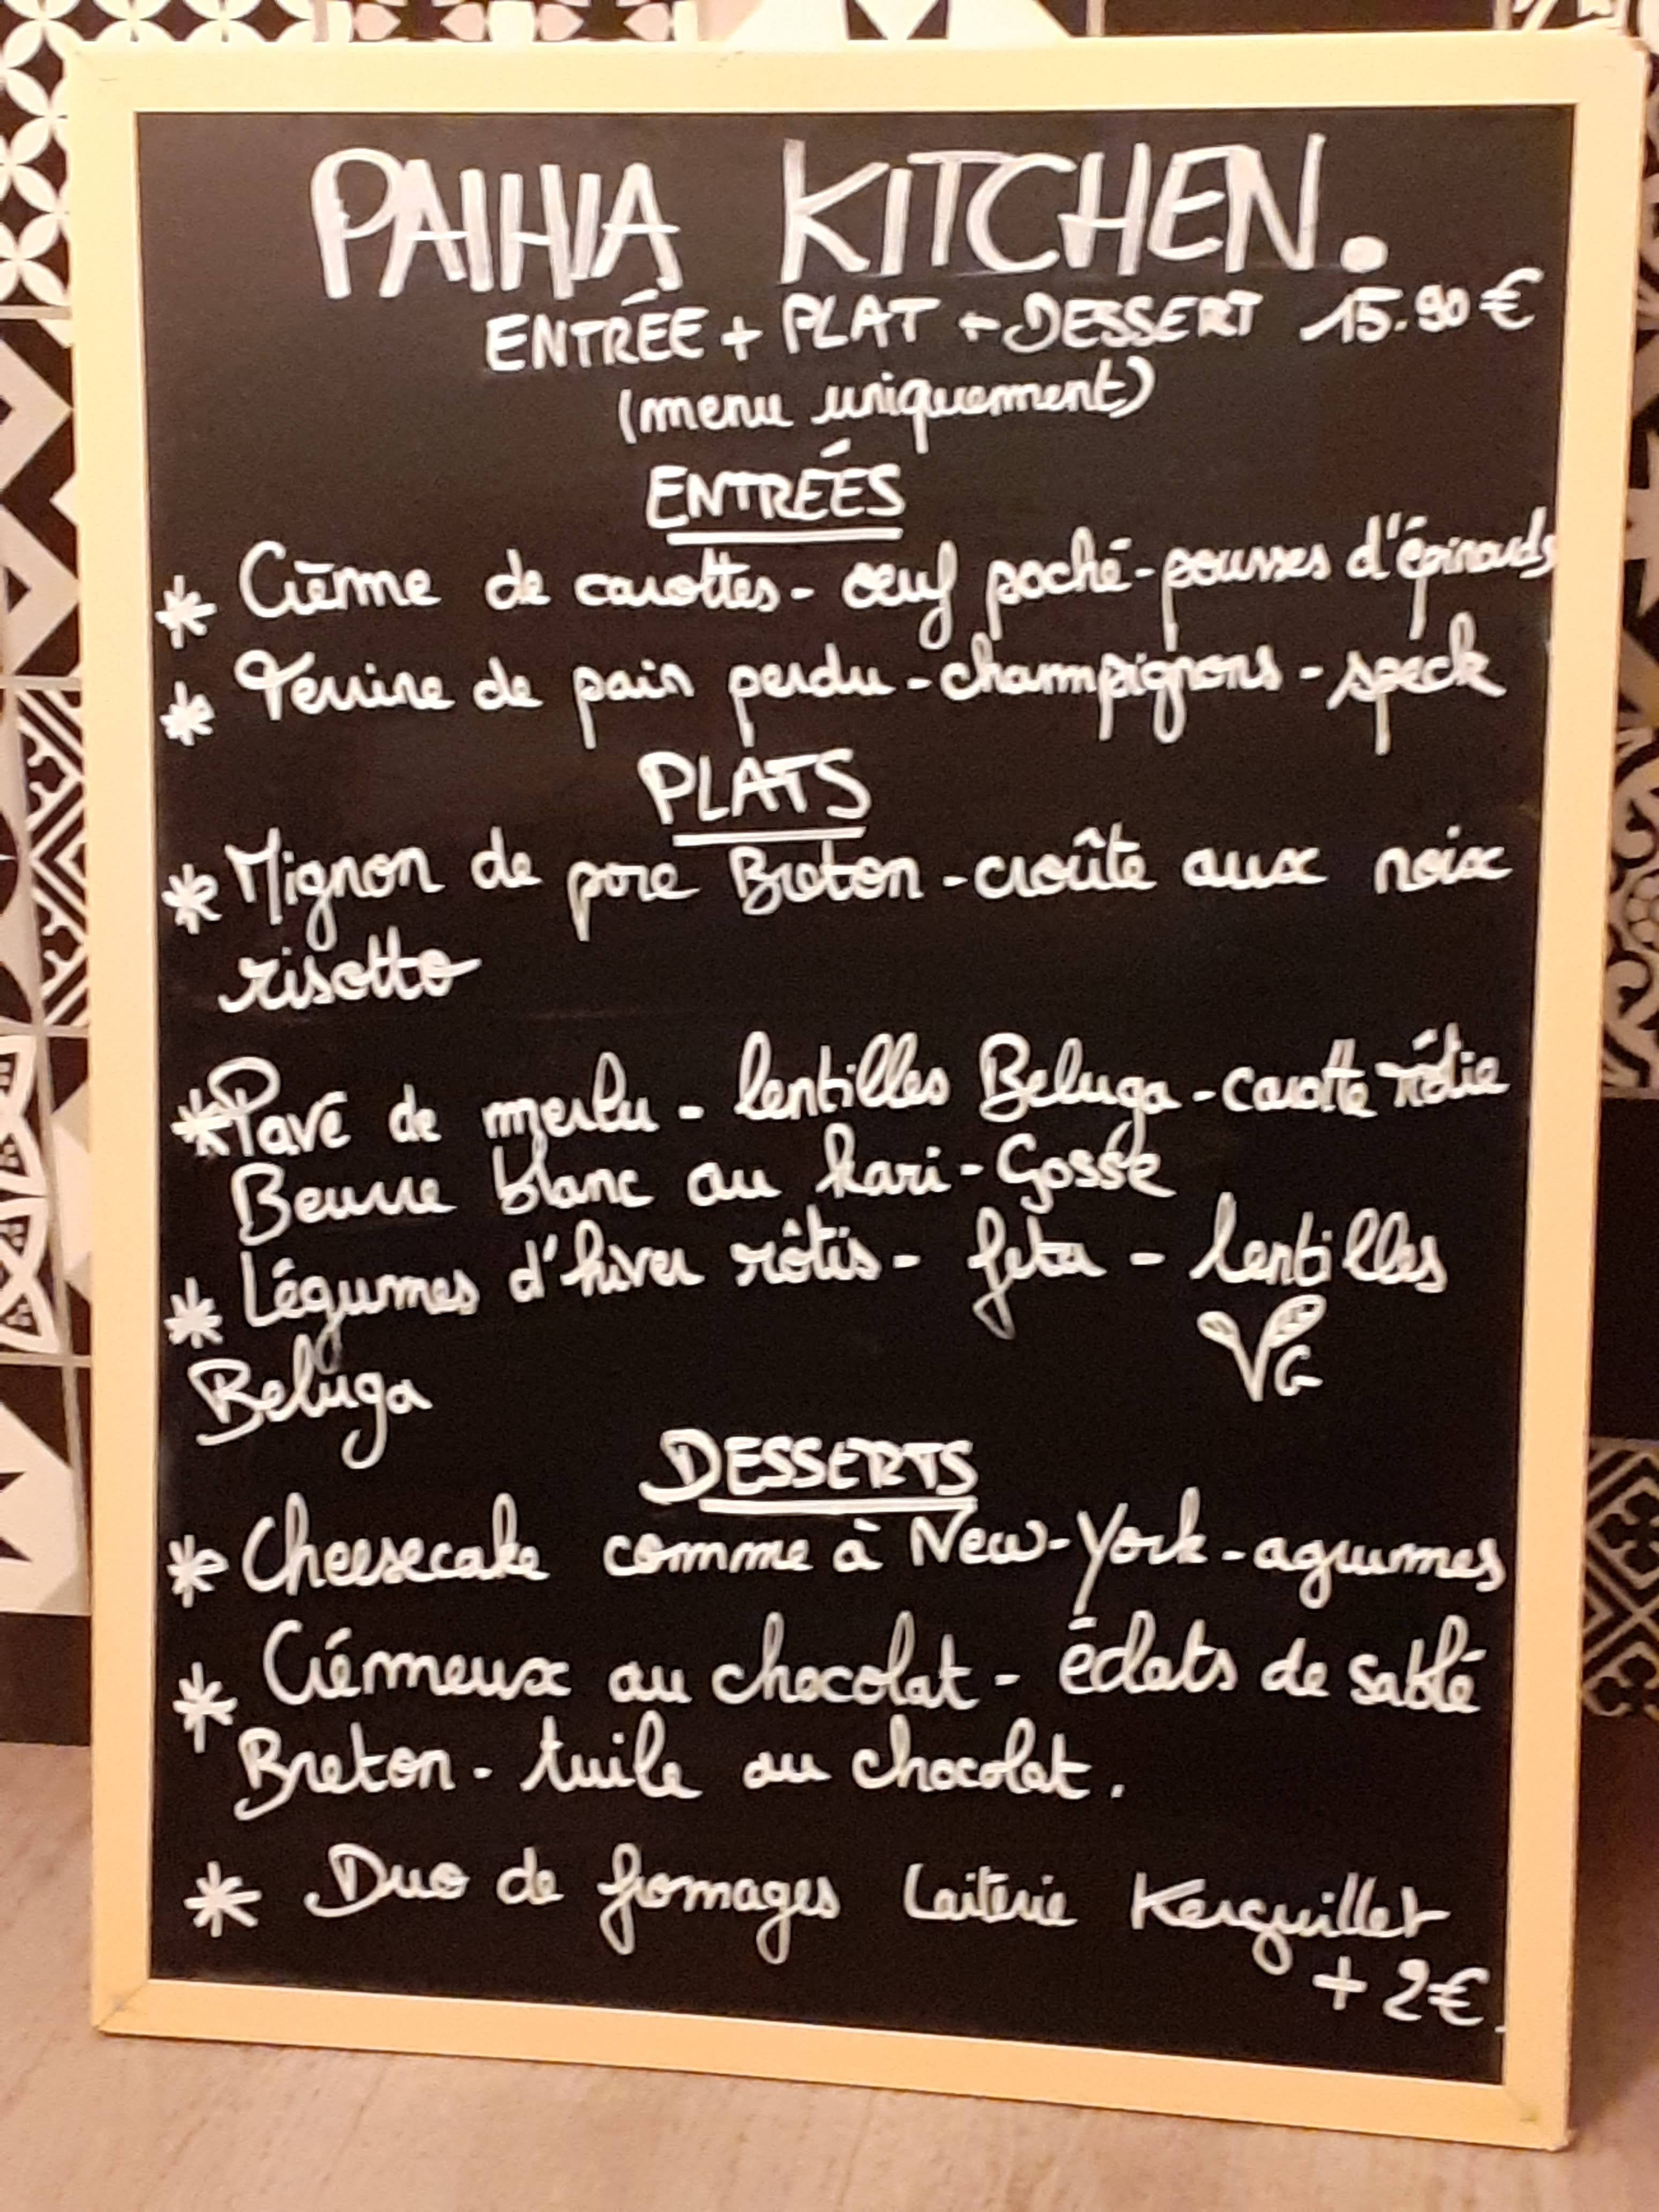 PAIHIA KITCHEN.
ENTRÉE + PLAT + DESSERT 15.90€
(menu uniquement)
ENTRÉES
* Crème de carottes - œuf poché - pousses d'épinards
* Terrine de pain perdu - champignons - speck
PLATS
* Mignon de porc Breton - croûte aux noix
risotto
* Pavé de merlu - lentilles Beluga - carotte rôtie
Beurre blanc au kari-Gosse
* Légumes d'hiver rôtis - feta - lentilles
VG
Beluga
DESSERTS
* Cheesecake comme à New-York - agrumes
* Crémeux au chocolat - éclats de sablé
Breton - tuile au chocolat.
* Duo de fromages Laiterie Kerguillet
+ 2€